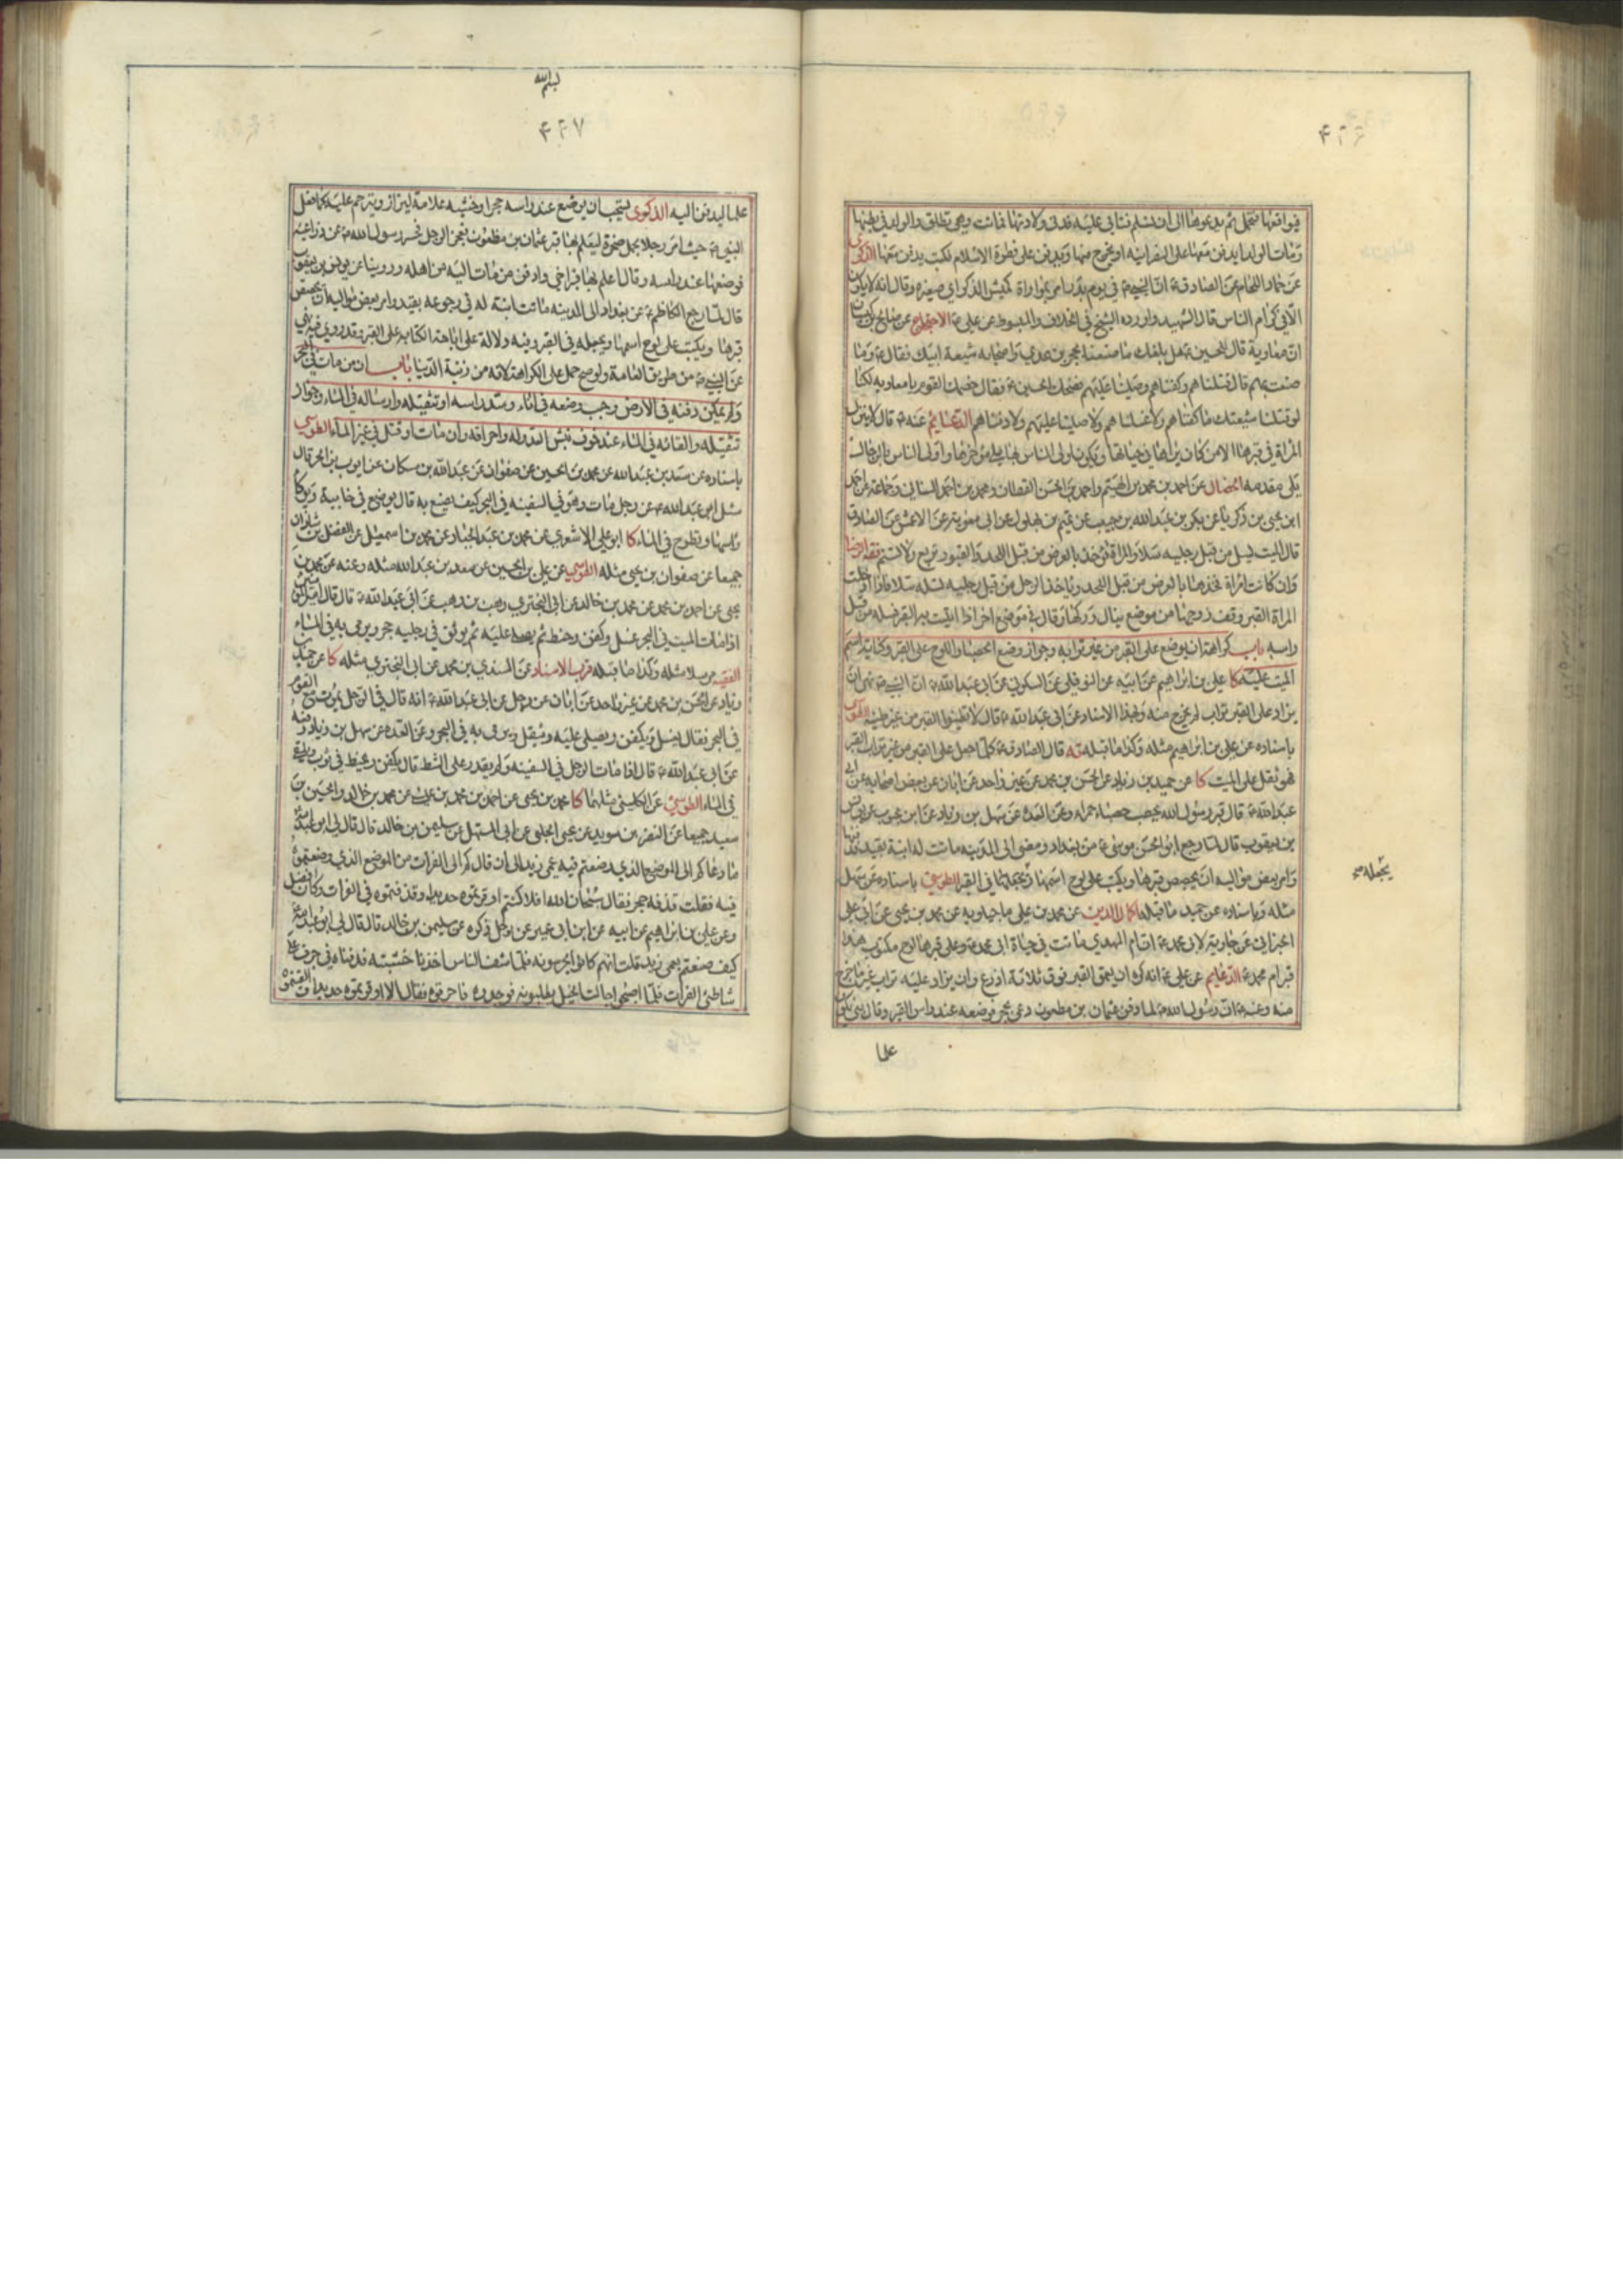 ۴۲۶
فيواقعها فتحمل ثم يدعوها الى ان تسلم فتابى عليه فدنى ولادتها فماتت وهي تطلق والولد في بطنها
ومات الولد ايدفن معها على النصرانية او يخرج منها ويدفن على فطرة الاسلام فكتب يدفن معها الذكرى
عن حماد اللحام عن الصادق ع ان النبي ص في يوم بدر امر بمواراة كميش الذكر اي صغيره وقال انه لا يكون
الا في كرام الناس قال الشهيد واورده الشيخ في الخلاف والمبسوط عن علي ع الاحتجاج عن صالح بن كيسان
ان معاوية قال للحسين ع هل بلغك ما صنعنا بحجر بن عدي واصحابه شيعة ابيك فقال ع وما
صنعت بهم قال قتلناهم وكفناهم وصلينا عليهم فضحك الحسين ع فقال خصمك القوم يا معاويه لكنا
لو قتلنا شيعتك ما كفناهم ولا غسلناهم ولا صلينا عليهم ولا دفناهم الدعايم عنه ع قال لا ينزل
المراة في قبرها الا من كان يراها في حياتها ويكون اولى الناس بها يلي مؤخرها واولى الناس بالرجال
يلي مقدمه الخصال عن احمد بن محمد بن الهيثم واحمد بن الحسن القطان ومحمد بن احمد السناني وجماعة عن احمد
ابن يحيى بن زكريا عن بكر بن عبد الله بن حبيب عن تميم بن بهلول عن ابي معوية عن الاعمش عن الصادق
قال الميت يسل من قبل رجليه سلا والمراة تؤخذ بالعرض من قبل اللحد والقبور تربع ولا تسنم فقه الرضا
وان كانت امراة فخذها بالعرض من قبل اللحد وياخذ الرجل من قبل رجليه تسله سلا فاذا ادخلت
المراة القبر وقف زوجها من موضع ينال وركها وقال في موضع اخر اذا اتيت به القبر فسله من قبل
راسه باب كراهة ان يوضع على القبر من غير ترابه وجواز وضع الحصباء واللوح على القبر وكتابة اسم
الميت عليه كا علي بن ابراهيم عن ابيه عن النوفلي عن السكوني عن ابي عبد الله ع ان النبي ص نهى ان
يزاد على القبر تراب لم يخرج منه وبهذا الاسناد عن ابي عبد الله ع قال لا تطينوا القبر من غير طينه الطوسي
باسناده عن علي بن ابراهيم مثله وكذا ما قبله يه قال الصادق ع كلما جعل على القبر من غير تراب القبر
فهو ثقل على الميت كا عن حميد بن زياد عن الحسن بن محمد عن غير واحد عن ابان عن بعض اصحابه عن ابي
عبد الله ع قال قبر رسول الله محصب حصباء حمراء وعن العدة عن سهل بن زياد عن ابن محبوب عن يونس
بن يعقوب قال لما رجع ابو الحسن موسى ع من بغداد ومضى الى المدينه ماتت له ابنة بفيد فدفنها
وامر بعض مواليه ان يجصص قبرها ويكتب على لوح اسمها ويجعله في القبر الطوسي باسناده عن سهل
مثله وباسناده عن حميد ما قبله اكمال الدين عن محمد بن علي ماجيلويه عن محمد بن يحيى عن ابي علي
الخيزراني عن جارية لابي محمد ع ان ام المهدي ماتت في حياة ابي محمد ع وعلى قبرها لوح مكتوب هذا
قبر ام محمد ع الدعايم عن علي ع انه كره ان يعمق القبر فوق ثلاثة اذرع وان يزاد عليه تراب غير ما خرج
منه وعنه ع ان رسول الله ص لما دفن عثمان بن مظعون دعى بحجر فوضعه عند راس القبر وقال يكون
علما
۴۲۷
علما ليدفن اليه الذكرى يستحب ان يوضع عند راسه حجر او خشبه علامة ليزار ويترحم عليه كما فعل
النبي ص حيث امر رجلا بحمل صخرة ليعلم بها قبر عثمان بن مظعون فعجز الرجل فحسر رسول الله ص عن ذراعيه
فوضعها عند راسه وقال اعلم بها قبر اخي وادفن من مات اليه من اهله وروينا عن يونس بن يعقوب
قال لما رجع الكاظم ع من بغداد الى المدينه ماتت ابنة له في رجوعه بفيد وامر بعض مواليه ان يجصص
قبرها ويكتب على لوح اسمها ويجعله في القبر وفيه دلالة على اباحة الكتابة على القبر وقد روي فيه نهي
عن النبي ص من طريق العامة ولو صح حمل على الكراهة لانه من زينة الدنيا باب ان من مات في البحر
ولم يمكن دفنه في الارض وجب وضعه في اناء وسد راسه او تثقيله وارساله في الماء وجواز
تثقيله والقائه في الماء عند خوف نبش العدو له واحراقه وان مات او قتل في غير الماء الطوسي
باسناده عن سعد بن عبد الله عن محمد بن الحسين عن صفوان عن عبد الله بن مسكان عن ايوب بن الحر قال
سئل ابو عبد الله ع عن رجل مات وهو في السفينه في البحر كيف يصنع به قال يوضع في خابية ويوكا
راسها وتطرح في الماء كا ابو علي الاشعري عن محمد بن عبد الجبار وعن محمد بن اسمعيل عن الفضل بن شاذان
جميعا عن صفوان بن يحيى مثله الطوسي عن علي بن الحسين عن سعد بن عبد الله مثله وعنه عن محمد بن
يحيى عن احمد بن محمد عن محمد بن خالد عن ابي البختري وهب بن وهب عن ابي عبد الله ع قال قال امير المؤمنين
اذا مات الميت في البحر غسل وكفن وحنط ثم يصلى عليه ثم يوثق في رجليه حجر ويرمى به في الماء
الفقيه مرسلا مثله وكذا ما قبله قرب الاسناد عن السندي بن محمد عن ابي البختري مثله كا عن حميد بن
زياد عن الحسن بن محمد عن غير واحد عن ابان عن رجل عن ابي عبد الله ع انه قال في الرجل يموت مع القوم
في البحر فقال يغسل ويكفن ويصلى عليه ويثقل ويرمى به في البحر وعن العدة عن سهل بن زياد رفعه
عن ابي عبد الله ع قال اذا مات الرجل في السفينه ولم يقدر على الشط قال يكفن ويحنط في ثوب ويلقى
في الماء الطوسي عن الكليني مثلهما كا محمد بن يحيى عن احمد بن محمد بن عيسى عن محمد بن خالد والحسين بن
سعيد جميعا عن النضر بن سويد عن يحيى الحلبي عن ابي المستهل عن سليمن بن خالد قال قال لي ابو عبد الله
ما دعاكم الى الموضع الذي وضعتم فيه عمي زيد الى ان قال كم الى الفرات من الموضع الذي وضعتموه
فيه فقلت قذفة حجر فقال سبحان الله افلا كنتم اوقرتموه حديدا وقذفتموه في الفرات وكان افضل
وعن علي بن ابراهيم عن ابيه عن ابن ابي عمير عن رجل ذكره عن سليمن بن خالد قال قال لي ابو عبد الله
كيف صنعتم بعمي زيد قلت انهم كانوا يحرسونه فلما شف الناس اخذنا خشبته فدفناه في جرف على
شاطئ الفرات فلما اصبحوا جالت الخيل يطلبونه فوجدوه فاحرقوه فقال الا اوقرتموه حديدا والقيتموه